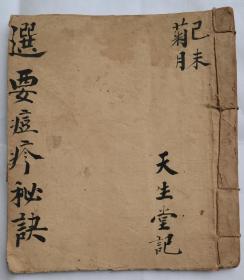 己未
菊月
天生堂記
選要痘疹秘訣